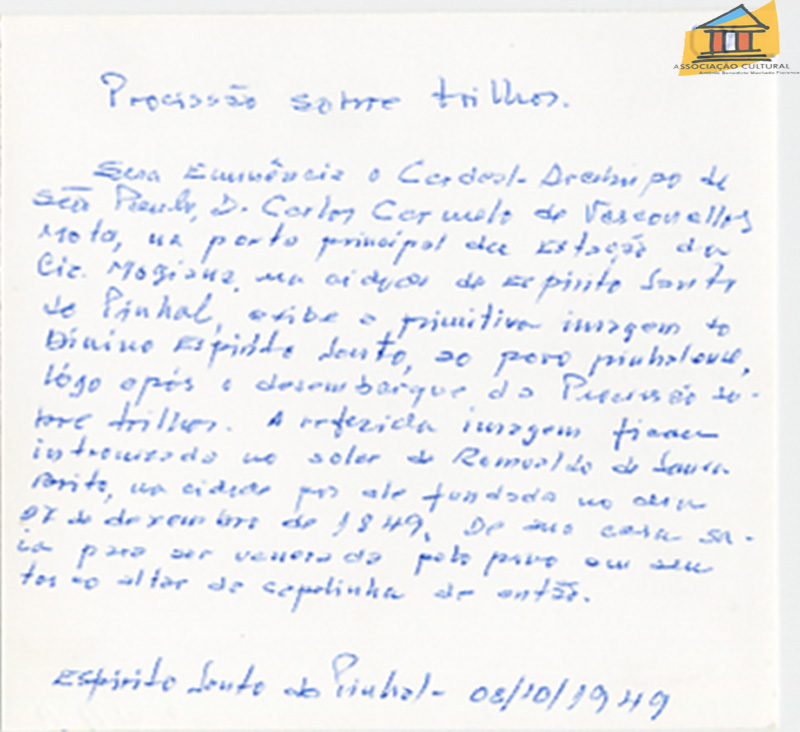 ASSOCIAÇÃO CULTURAL
Antonio Benedicto Machado Florence
Procissão sobre trilhos.
Sua Eminência o Cardeal-Arcebispo de
São Paulo, D. Carlos Carmelo de Vasconcellos
Mota, na porta principal da Estação da
Cia. Mogiana, na cidade de Espirito Santo
do Pinhal, exibe a primitiva imagem do
Divino Espirito Santo, ao povo pinhalense,
lógo após o desembarque da Procissão so-
bre trilhos. A referida imagem ficou
intronizada no solar de Romualdo de Souza
Brito, na cidade por ele fundada no dia
27 de dezembro de 1849. De sua casa sa-
ia para ser venerada pelo povo em
no altar da capelinha de então.
Espirito Santo do Pinhal - 08/10/1949